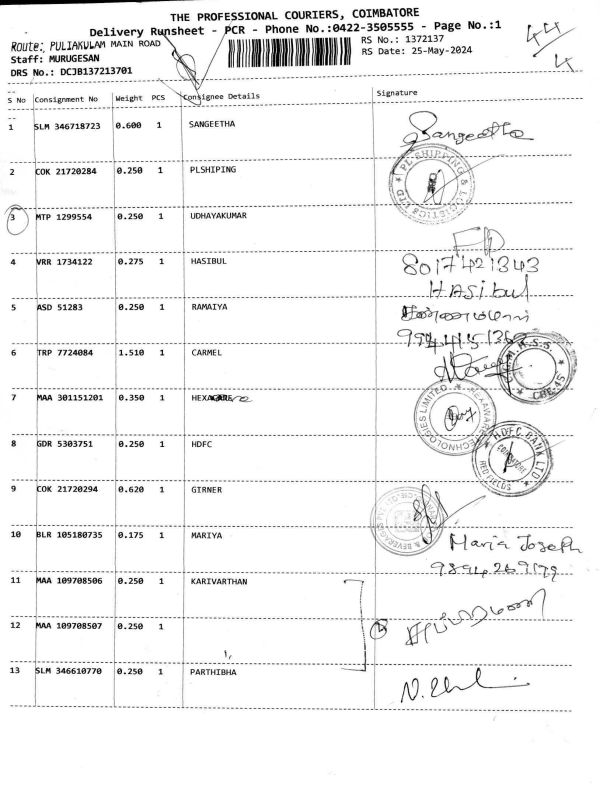 THE PROFESSIONAL COURIERS, COIMBATORE
Delivery Runsheet - PCR - Phone No.:0422-3505555 - Page No.:1
Route: PULIAKULAM MAIN ROAD
RS No.: 1372137
Staff: MURUGESAN
RS Date: 25-May-2024
DRS No.: DCJB137213701
44
4
S No Consignment No Weight PCS Consignee Details Signature
1 SLM 346718723 0.600 1 SANGEETHA Sangeetha
2 COK 21720284 0.250 1 PLSHIPING PL SHIPPING & LOGISTICS LTD
3 MTP 1299554 0.250 1 UDHAYAKUMAR
4 VRR 1734122 0.275 1 HASIBUL 8017421343
HASibul
5 ASD 51283 0.250 1 RAMAIYA
6 TRP 7724084 1.510 1 CARMEL
7 MAA 301151201 0.350 1 HEXAWARE HEXAWARE TECHNOLOGIES LIMITED
8 GDR 5303751 0.250 1 HDFC HDFC BANK LTD
COIMBATORE
RED FIELDS
9 COK 21720294 0.620 1 GIRNER
10 BLR 105180735 0.175 1 MARIYA Maria Joseph
11 MAA 109708506 0.250 1 KARIVARTHAN
12 MAA 109708507 0.250 1
13 SLM 346610770 0.250 1 PARTHIBHA